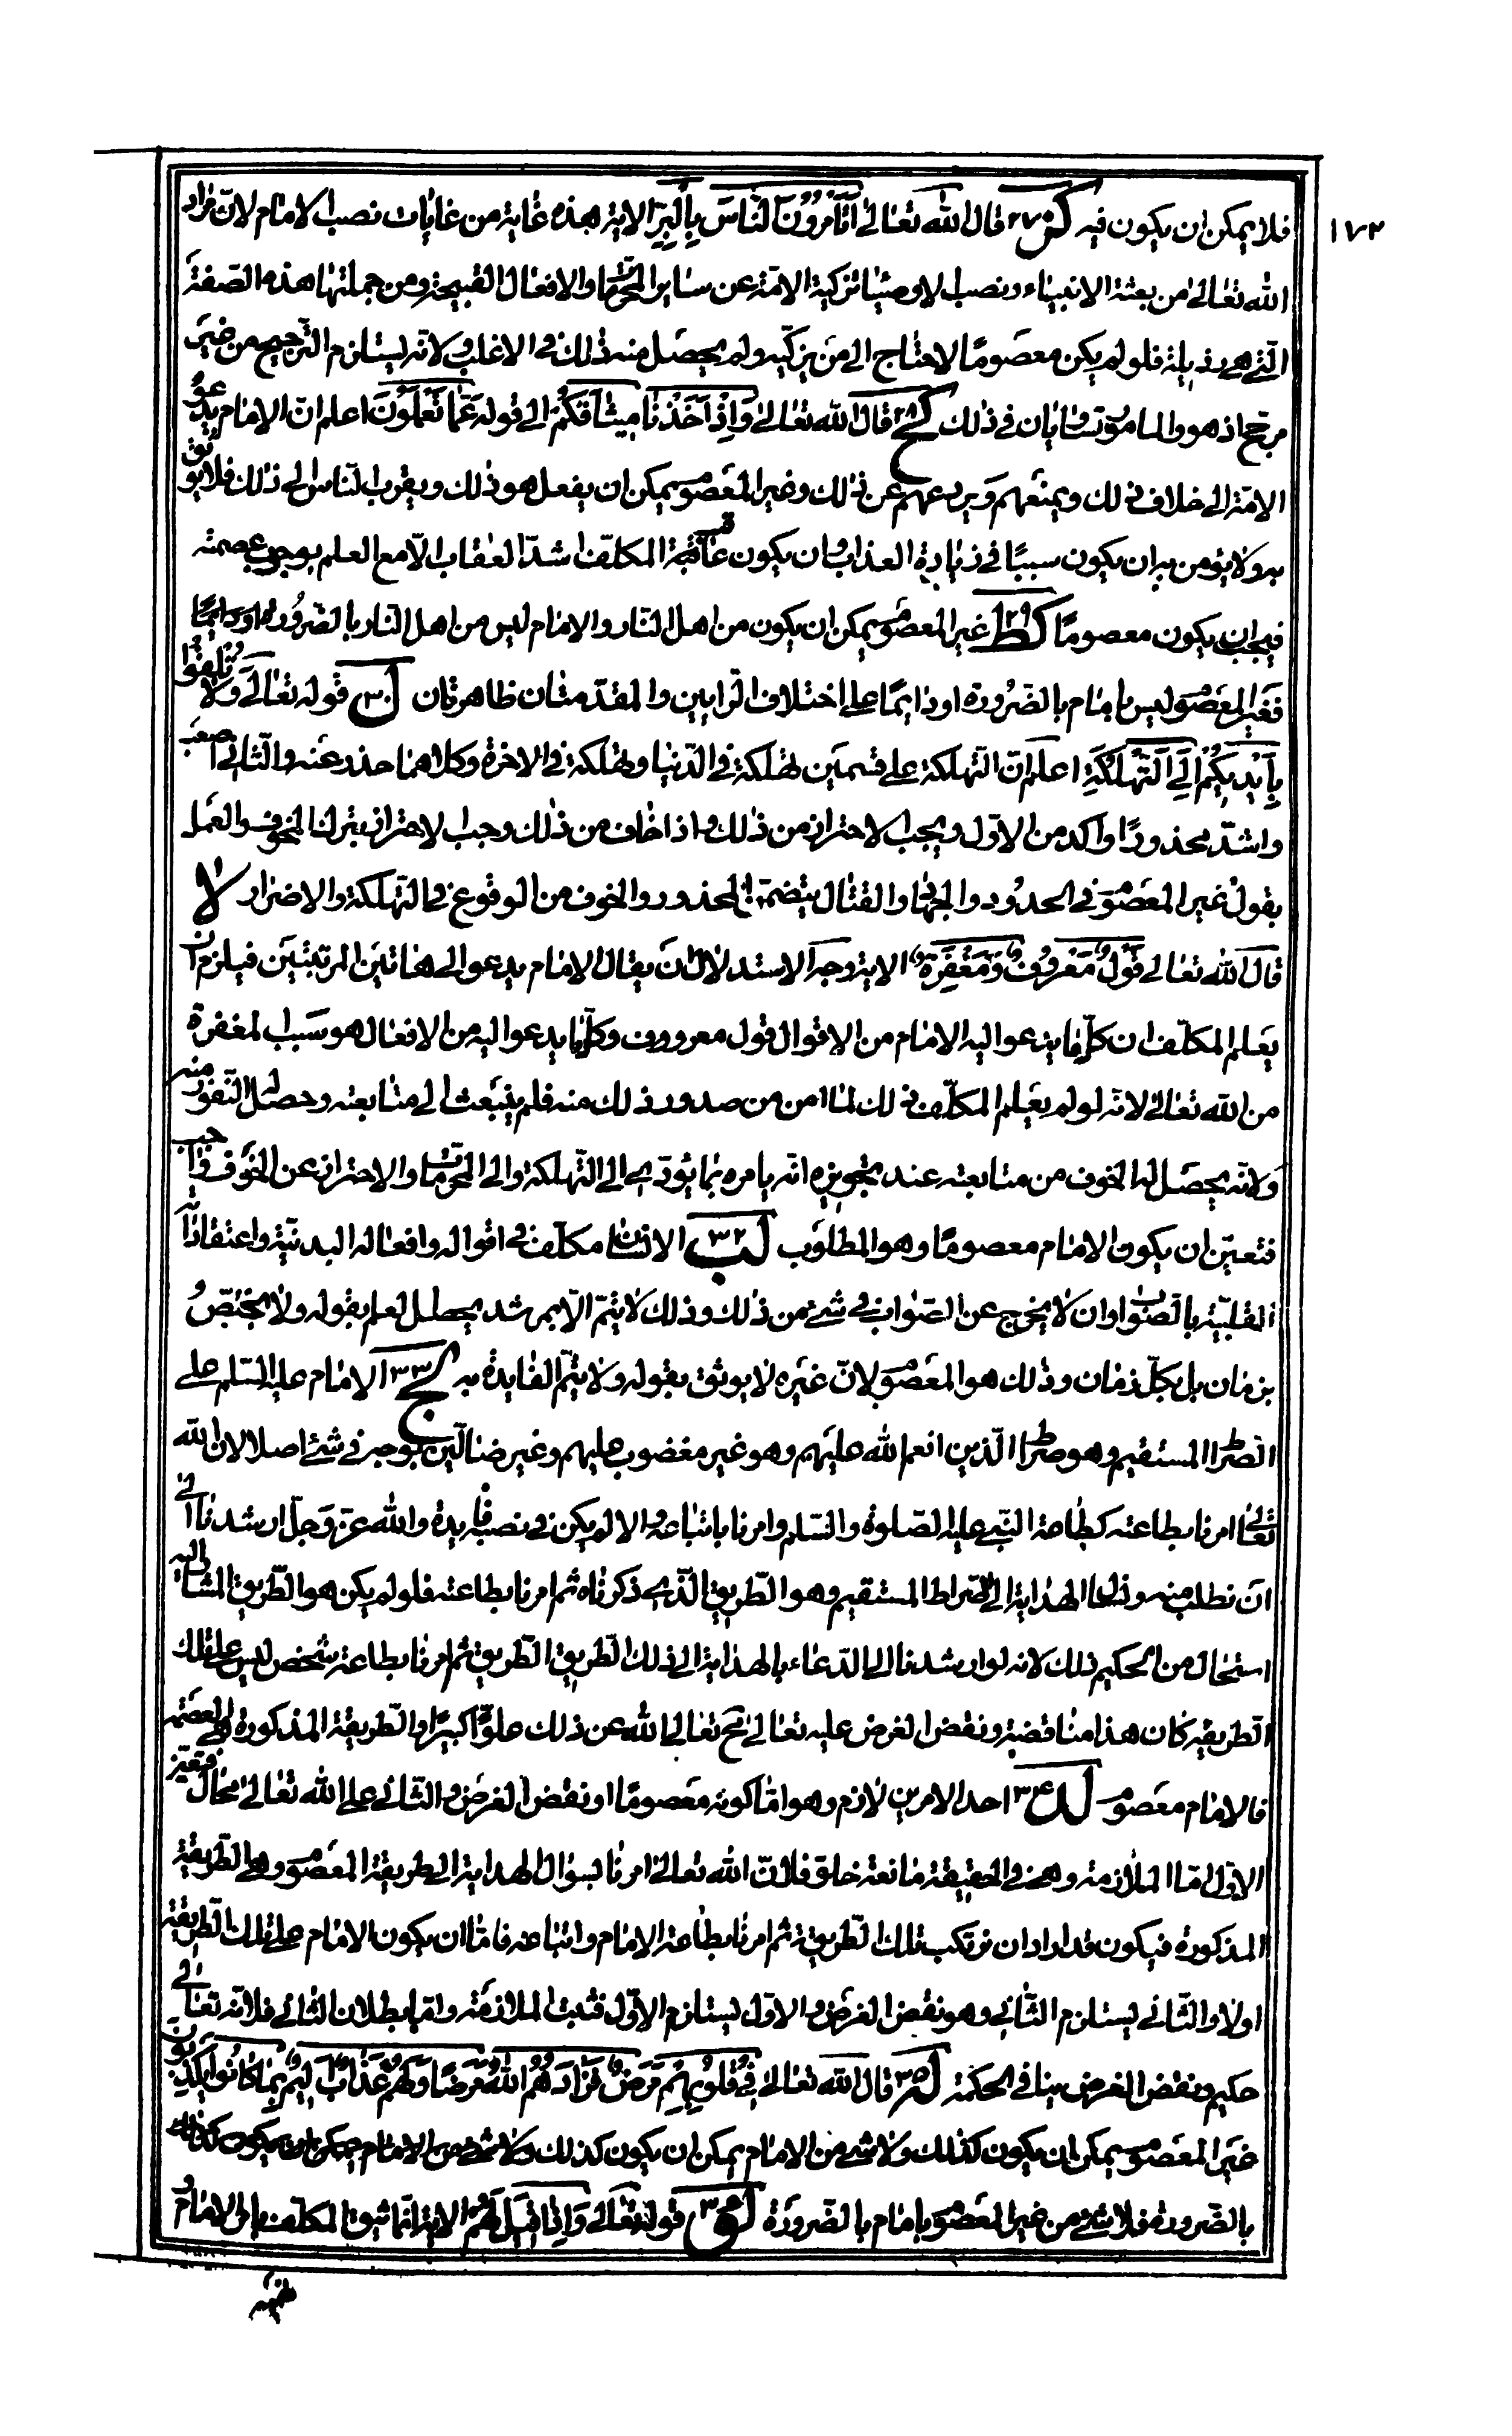 ١٧٢
فلا يمكن ان يكون فيه كز ٢٧ قال الله تعالى أَتَأْمُرُونَ النَّاسَ بِالْبِرِّ الاية هذه غاية من غايات نصب الامام لان مراد
الله تعالى من بعثة الانبياء ونصب الاوصياء تزكية الامة عن ساير المحرمات والافعال القبيحة ومن جملتها هذه الصفة
التي هي رذيلة فلو لم يكن معصومًا لاحتاج الى من يزكيه ولم يحصل منه ذلك في الاغلب ولانه يستلزم الترجيح من غير
مرجح اذ هو والمامور متساويان في ذلك كح ٢٨ قال الله تعالى وَاِذْ اَخَذْنَا مِيثَاقَكُمْ الى قوله عَمَّا تَعْمَلُونَ اعلم ان الامام يدعو
الامة الى خلاف ذلك ويمنعهم ويردعهم عن ذلك وغير المعصوم يمكن ان يفعل هو ذلك ويقرب الناس الى ذلك فلا يوثق
به ولا يؤمن به ان يكون سببًا في زيادة العذاب وان يكون عاقبة المكلف اشد العقاب الا مع العلم بوجوب عصمته
فيجب ان يكون معصومًا كط ٢٩ غير المعصوم يمكن ان يكون من اهل النار والامام ليس من اهل النار بالضرورة او دايمًا
فغير المعصوم ليس بامام بالضرورة او دايمًا على اختلاف الرايين والمقدمتان ظاهرتان ل ٣٠ قوله تعالى وَلَا تُلْقُوا
بِاَيْدِيكُمْ اِلَى التَّهْلُكَةِ اعلم ان التهلكة على قسمين تهلكة في الدنيا وتهلكة في الاخرة وكلاهما حذر عنه والثاني اصعب
واشد محذورًا واكد من الاول ويجب الاحتراز من ذلك واذا خاف من ذلك وجب الاحتراز بترك المخوف والعمل
بقول غير المعصوم في الحدود والجهاد والقتال يتضمن المحذور والخوف من الوقوع في التهلكة والاضرار لا
قال الله تعالى قَوْلٌ مَعْرُوفٌ وَمَغْفِرَةٌ الاية وجه الاستدلال ان يقال الامام يدعو الى هاتين المرتبتين فيلزم ان
يعلم المكلف ان كل ما يدعو اليه الامام من الاقوال قول معروف وكل ما يدعو اليه من الافعال هو سبب المغفرة
من الله تعالى لانه لو لم يعلم المكلف ذلك لما امن من صدور ذلك منه فلم ينبعث الى متابعته وحصل له النفور منه
ولانه يحصل له الخوف من متابعته عند تجويزه انه يامره بما يؤدي الى التهلكة والى المحرمات والاحتراز عن الخوف واجب
فتعين ان يكون الامام معصومًا وهو المطلوب لب ٣٢ الانسان مكلف في اقواله وافعاله البدنية واعتقاداته
القلبية بالصواب وان لا يخرج عن الصواب في شيء من ذلك وذلك لا يتم الا بمرشد يحصل العلم بقوله ولا يختص
بزمان بل بكل زمان وذلك هو المعصوم لان غيره لا يوثق بقوله ولا يتم الفايدة به لج ٣٣ الامام عليه السلم على
الصراط المستقيم وهو صراط الذين انعم الله عليهم وهو غير مغضوب عليهم وغير ضالين بوجه في شئ اصلا لان الله
تعالى امرنا بطاعته كطاعة النبي عليه الصلوة والسلم وامرنا باتباعه والا لم يكن في نصبه فايدة والله عز وجل ارشدنا الى
ان نطلب منه وفي الهداية الى الصراط المستقيم وهو الطريق الذي ذكرناه ثم امرنا بطاعته فلو لم يكن هو الطريق المشار اليه
استحال من الحكيم ذلك لانه لو ارشدنا الى الدعاء بالهداية الى ذلك الطريق الطريق ثم امرنا بطاعة شخص ليس على تلك
الطريقة كان هذا مناقضة ونقض الغرض عليه تعالى مح تعالى الله عن ذلك علوًا كبيرًا والطريقة المذكورة هي العصمة
فالامام معصوم لد ٣٤ احد الامرين لازم وهو اما كونه معصومًا او نقض الغرض والثاني على الله تعالى محال فتعين
الاول اما الملازمة وهي في الحقيقة مانعة خلو فلان الله تعالى امرنا بسؤال الهداية الى طريقة المعصوم وهي الطريقة
المذكورة فيكون قد اراد ان نرتكب تلك الطريقة ثم امرنا بطاعة الامام واتباعه فاما ان يكون الامام على تلك الطريقة
اولا والثاني يستلزم الثاني وهو نقض الغرض والاول يستلزم الاول فثبت الملازمة واما بطلان الثاني فلانه تعالى
حكيم ونقض الغرض ينافي الحكمة له ٣٥ قال الله تعالى فِي قُلُوبِهِمْ مَرَضٌ فَزَادَهُمُ اللهُ مَرَضًا وَلَهُمْ عَذَابٌ اَلِيمٌ بِمَا كَانُوا يَكْذِبُونَ
غير المعصوم يمكن ان يكون كذلك ولا شي من الامام يمكن ان يكون كذلك ولا شي من الامام يمكن ان يكون كذلك
بالضرورة فلا شئ من غير المعصوم بامام بالضرورة لو ٣٦ قوله تعالى وَاِذَا قِيلَ لَهُمْ الاية انما يثق المكلف الى الامام